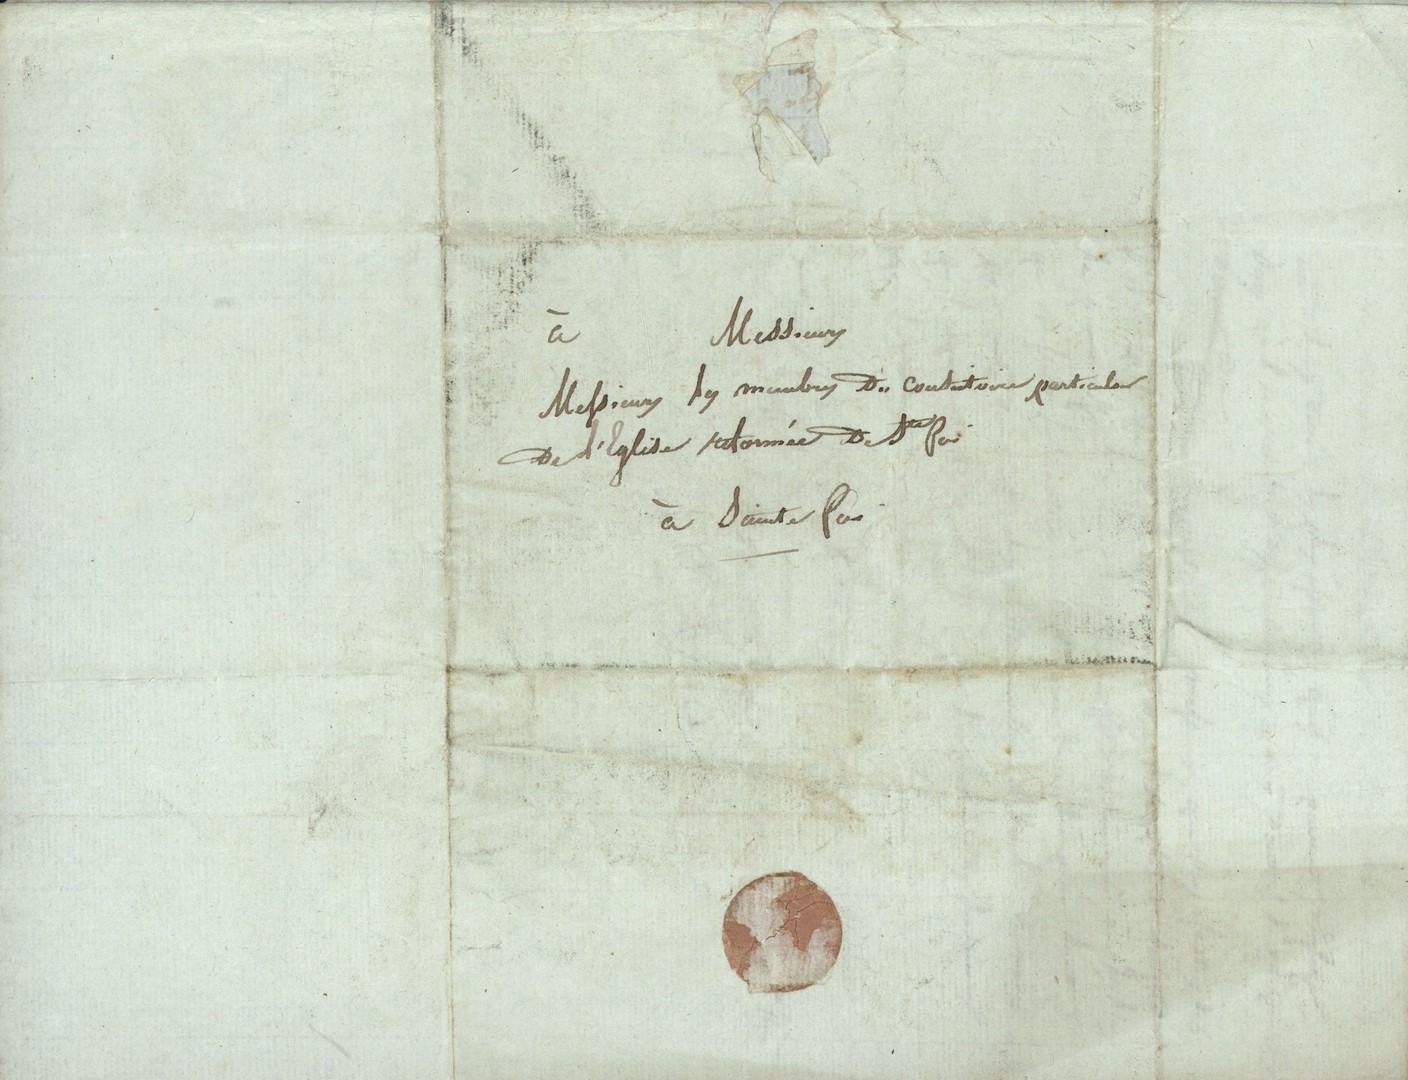 à Messieurs
Messieurs les membres du consistoire particulier
de l'Eglise reformée de Ste Foi
à Sainte Foi